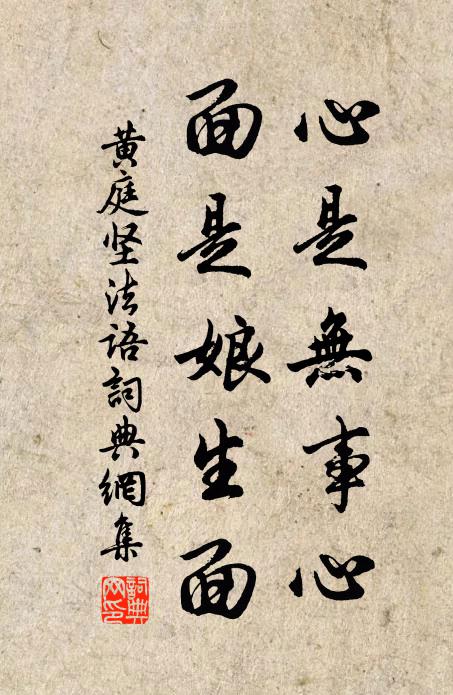 心是無事心
面是娘生面
黄庭坚法語詞典網集
詞典网印